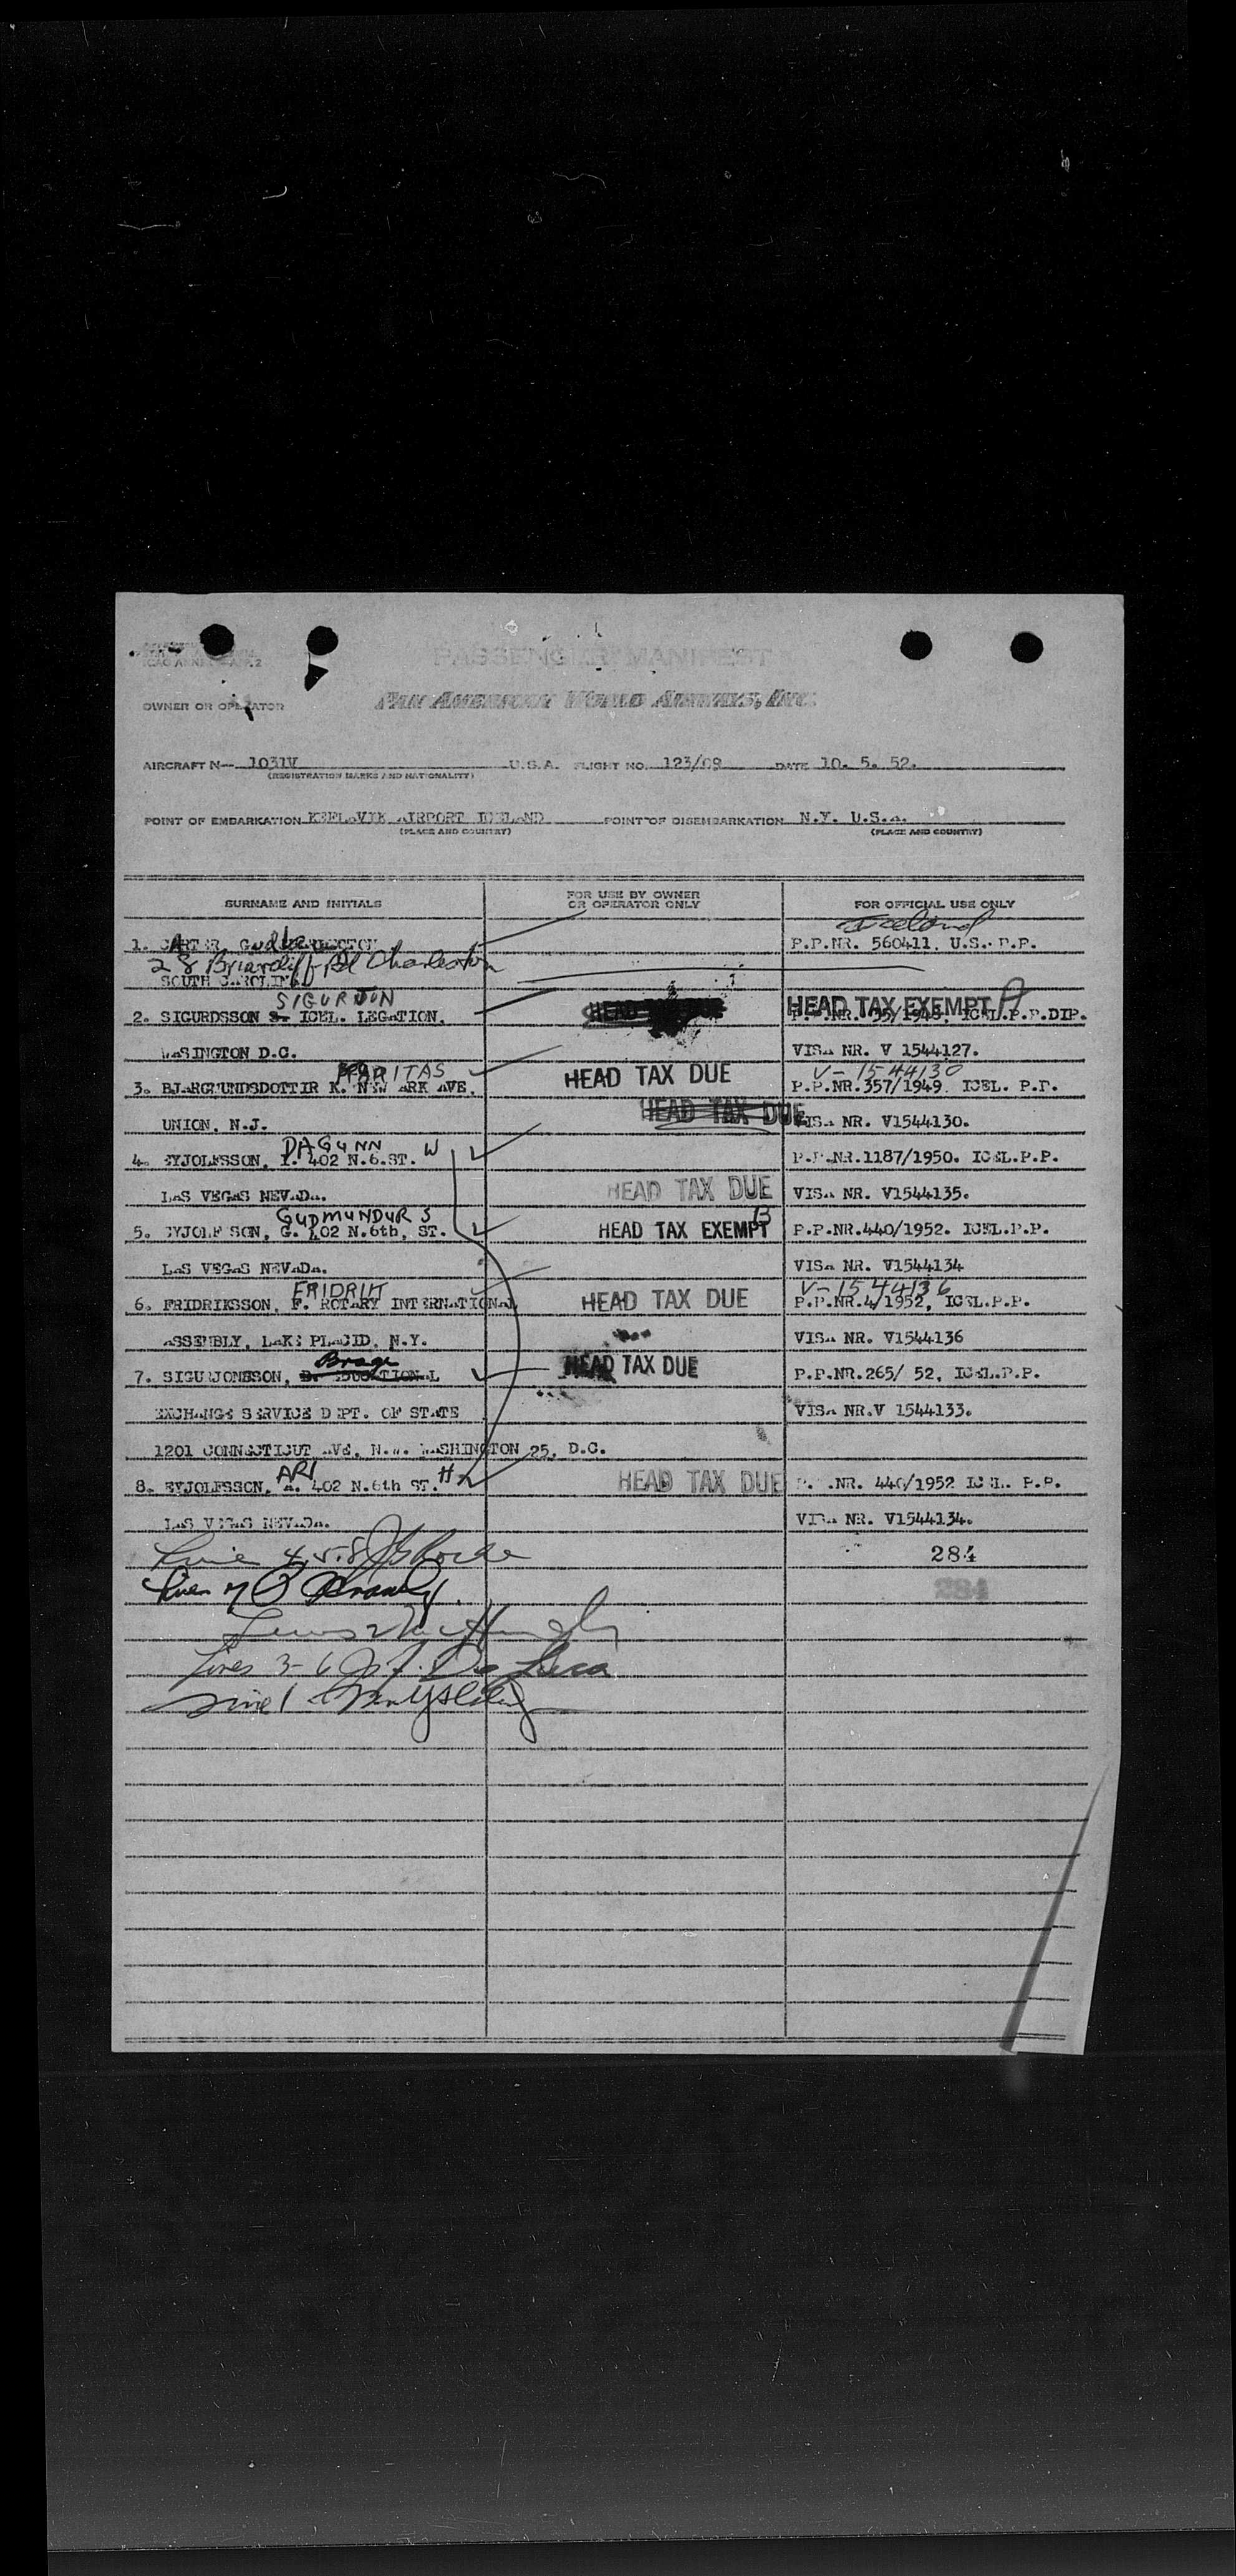 ICAO ANNEX 9 APP. 2
PASSENGER MANIFEST
OWNER OR OPERATOR PAN AMERICAN WORLD AIRWAYS, INC.
AIRCRAFT N-- 1031V U.S.A. FLIGHT NO. 123/09 DATE 10. 5. 52.
(REGISTRATION MARKS AND NATIONALITY)
POINT OF EMBARKATION KEFLAVIK AIRPORT ICELAND POINT OF DISEMBARKATION N.Y. U.S.A.
(PLACE AND COUNTRY) (PLACE AND COUNTRY)
SURNAME AND INITIALS FOR USE BY OWNER OR OPERATOR ONLY FOR OFFICIAL USE ONLY
Iceland
1. CARTER, P.P.NR. 560411, U.S. P.P.
28 Briarcliff Rd Charleston
SOUTH CAROLINA
SIGURJON
HEAD TAX EXEMPT A
2. SIGURDSSON S. ICEL. LEGATION, P.P.NR. 55/1948, ICEL.P.P.DIP.
WASINGTON D.C. VISA NR. V 1544127.
FARITAS V-1544130
3. BJARGMUNDSDOTTIR K. NEW ARK AVE, HEAD TAX DUE P.P.NR.357/1949. ICEL. P.P.
HEAD TAX DUE
UNION, N.J. VISA NR. V1544130.
DAGUNN W
4. EYJOLFSSON, I. 402 N.6.ST. P.P.NR.1187/1950. ICEL.P.P.
LAS VEGAS NEVADA. HEAD TAX DUE VISA NR. V1544135.
GUDMUNDUR S B
5. EYJOLFSSON, G. 402 N.6th, ST. HEAD TAX EXEMPT P.P.NR.440/1952. ICEL.P.P.
LAS VEGAS NEVADA. VISA NR. V1544134
FRIDRIK V-1544136
6. FRIDRIKSSON, F. ROTARY INTERNATIONAL HEAD TAX DUE P.P.NR.4/1952, ICEL.P.P.
ASSEMBLY, LAKE PLACID, N.Y. VISA NR. V1544136
Brage
7. SIGURJONSSON, B. EDUCATIONAL HEAD TAX DUE P.P.NR.265/ 52, ICEL.P.P.
EXCHANGE SERVICE DEPT. OF STATE VISA NR.V 1544133.
1201 CONNECTICUT AVE, N.W. WASHINGTON 25, D.C.
ARI H
8. EYJOLFSSON, A. 402 N.6th ST. HEAD TAX DUE P.P.NR. 440/1952 ICEL. P.P.
LAS VEGAS NEVADA. VISA NR. V1544134.
Line 4.5.8 284
Line 7 284
Lines 3-6
Line 1